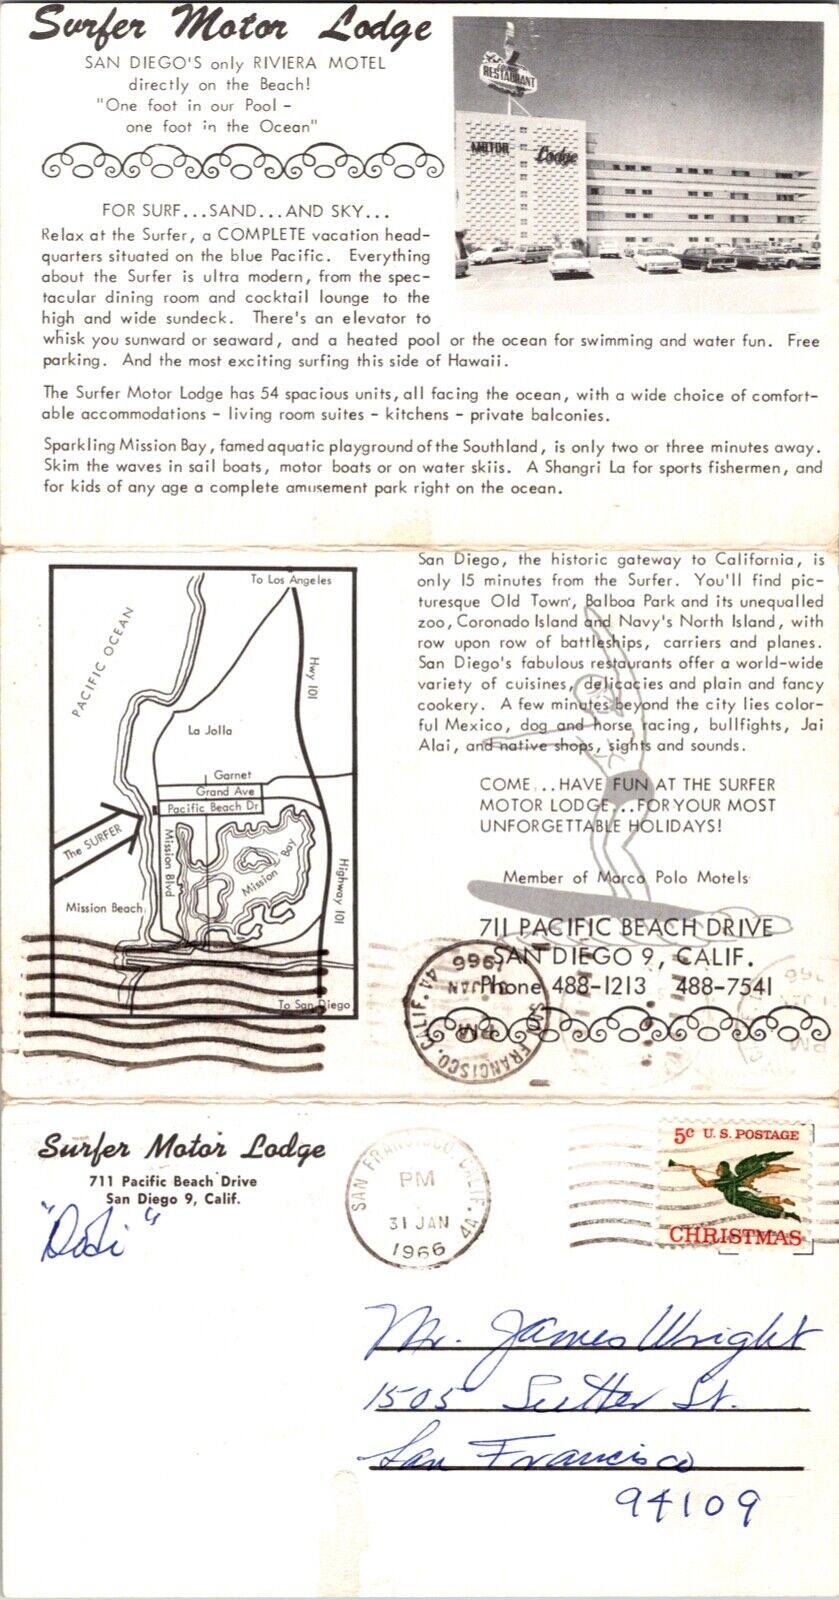 Surfer Motor Lodge
SAN DIEGO'S only RIVIERA MOTEL
directly on the Beach!
"One foot in our Pool -
one foot in the Ocean"
RESTAURANT
MOTOR Lodge
FOR SURF...SAND...AND SKY...
Relax at the Surfer, a COMPLETE vacation head-
quarters situated on the blue Pacific. Everything
about the Surfer is ultra modern, from the spec-
tacular dining room and cocktail lounge to the
high and wide sundeck. There's an elevator to
whisk you sunward or seaward, and a heated pool or the ocean for swimming and water fun. Free
parking. And the most exciting surfing this side of Hawaii.
The Surfer Motor Lodge has 54 spacious units, all facing the ocean, with a wide choice of comfort-
able accommodations - living room suites - kitchens - private balconies.
Sparkling Mission Bay, famed aquatic playground of the Southland, is only two or three minutes away.
Skim the waves in sail boats, motor boats or on water skiis. A Shangri La for sports fishermen, and
for kids of any age a complete amusement park right on the ocean.
To Los Angeles
PACIFIC OCEAN
Hwy 101
La Jolla
Garnet
Grand Ave
Pacific Beach Dr
The SURFER
Mission Blvd
Mission Bay
Highway 101
Mission Beach
To San Diego
San Diego, the historic gateway to California, is
only 15 minutes from the Surfer. You'll find pic-
turesque Old Town, Balboa Park and its unequalled
zoo, Coronado Island and Navy's North Island, with
row upon row of battleships, carriers and planes.
San Diego's fabulous restaurants offer a world-wide
variety of cuisines, delicacies and plain and fancy
cookery. A few minutes beyond the city lies color-
ful Mexico, dog and horse racing, bullfights, Jai
Alai, and native shops, sights and sounds.
COME...HAVE FUN AT THE SURFER
MOTOR LODGE...FOR YOUR MOST
UNFORGETTABLE HOLIDAYS!
Member of Marco Polo Motels
711 PACIFIC BEACH DRIVE
SAN DIEGO 9, CALIF.
Phone 488-1213 488-7541
SAN FRANCISCO, CALIF. 4A
PM
JAN
1966
Surfer Motor Lodge
711 Pacific Beach Drive
San Diego 9, Calif.
"Dodi"
SAN FRANCISCO, CALIF. 4A
PM
31 JAN
1966
5c U.S. POSTAGE
CHRISTMAS
Mr. James Wright
1505 Sutter St.
San Francisco
94109